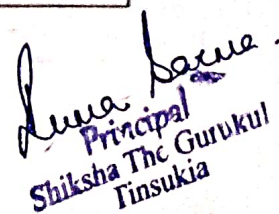 Runa Sarma
Principal
Shiksha The Gurukul
Tinsukia